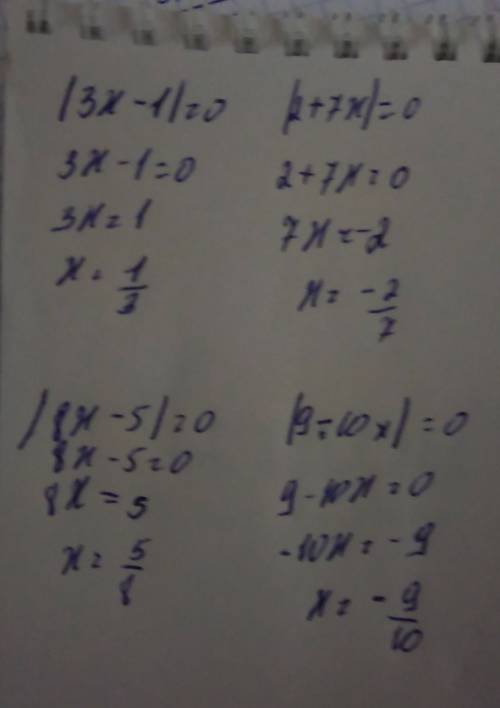 |3x - 1| = 0
3x - 1 = 0
3x = 1
x = 1/3
|2 + 7x| = 0
2 + 7x = 0
7x = -2
x = -2/7
|8x - 5| = 0
8x - 5 = 0
8x = 5
x = 5/8
|9 - 10x| = 0
9 - 10x = 0
-10x = -9
x = -9/10